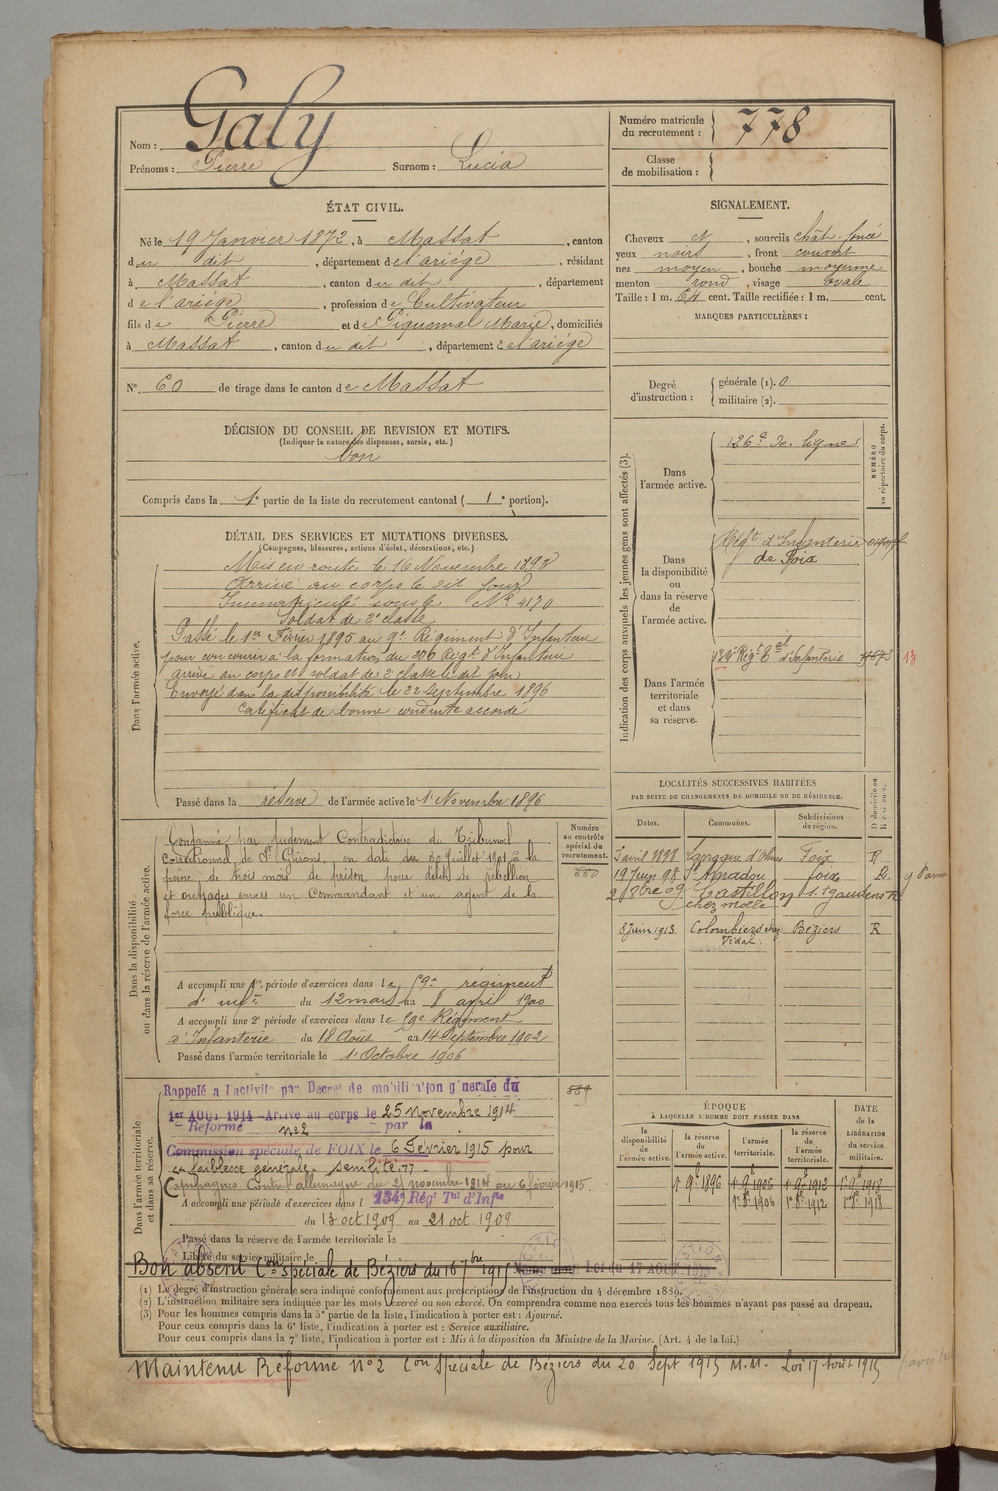 Nom : Galy
Prénoms : Pierre Surnom : Lucia
Numéro matricule du recrutement : 778
Classe de mobilisation :
ÉTAT CIVIL.
Né le 19 Janvier 1872, à Massat, canton
du dit, département de l'ariège, résidant
à Massat, canton du dit, département
de l'ariège, profession de Cultivateur
fils de Pierre et de Piquemal Marie, domiciliés
à Massat, canton du dit, département de l'ariège
N° 60 de tirage dans le canton de Massat
DÉCISION DU CONSEIL DE REVISION ET MOTIFS.
(Indiquer la nature des dispenses, sursis, etc.)
bon
Compris dans la 1e partie de la liste du recrutement cantonal (1e portion).
SIGNALEMENT.
Cheveux et, sourcils chât. foncé
yeux noirs, front couvert
nez moyen, bouche moyenne
menton rond, visage ovale
Taille : 1 m. 64 cent. Taille rectifiée : 1 m. cent.
MARQUES PARTICULIÈRES :
Degré d'instruction :
générale (1). 0
militaire (2).
DÉTAIL DES SERVICES ET MUTATIONS DIVERSES.
(Campagnes, blessures, actions d'éclat, décorations, etc.)
Dans l'armée active.
Mis en route le 16 Novembre 1893
Arrivé au corps le dit jour
Immatriculé sous le N° 4170
Soldat de 2e classe
Passé le 1er Février 1895 au 9e Régiment d'Infanterie
pour concourir à la formation du Régt d'Infanterie
arrivé au corps et soldat de 2 classe le dit jour
Envoyé dans la disponibilité le 22 septembre 1896
Certificat de bonne conduite accordé
Passé dans la réserve de l'armée active le 1er Novembre 1896
Indication des corps auxquels les jeunes gens sont affectés (3).
NUMÉRO au répertoire du corps.
Dans l'armée active.
126e de ligne
Dans la disponibilité ou dans la réserve de l'armée active.
Régt d'Infanterie
de Foix
Dans l'armée territoriale et dans sa réserve.
134e Régt Eal d'Infanterie
13
Dans la disponibilité ou dans la réserve de l'armée active.
Condamné par jugement Contradictoire du Tribunal
Correctionnel de St Girons, en date du 30 Juillet 1901 à la
peine de trois mois de prison pour délits de rébellion
et outrages envers un Commandant et un agent de la
force publique.
Numéro au contrôle spécial du recrutement.
A accompli une 1re période d'exercices dans le 59e régiment
d'infie du 12 mars au 8 april 1900
A accompli une 2e période d'exercices dans le 59e Régiment
d'Infanterie du 18 Août au 14 Septembre 1902
Passé dans l'armée territoriale le 1er Octobre 1906
LOCALITÉS SUCCESSIVES HABITÉES
PAR SUITE DE CHANGEMENTS DE DOMICILE OU DE RÉSIDENCE.
Dates. Communes. Subdivisions de région. D domicile ou R résidence.
3 avril 1898 Laroque d'Olmes Foix R
19 Juin 98 St Amadou foix R
2 8bre 09 Castillon St gaudens R
chez
8 juin 1913 Colombiers chez Vidal. Béziers R
Dans l'armée territoriale et dans sa réserve.
Rappelé à l'activité par Decret de mobilisation générale du
1er AOUT 1914 - Arrivé au corps le 25 novembre 1914
Réformé n°2 par la
Commission spéciale de FOIX le 6 Fevrier 1915 pour
faiblesse générale - senilité. 77 -
Campagnes Contre l'allemagne du 21 novembre 1914 au 6 février 1915.
589
A accompli une période d'exercices dans l 134e Régt Tal d'Infie
du 13 oct 1909 au 21 oct. 1909
Passé dans la réserve de l'armée territoriale le
Libéré du service militaire le
Bon absent Con spéciale de Béziers du 16 7bre 1915 Loi du 17 AOUT 1915
ÉPOQUE
À LAQUELLE L'HOMME DOIT PASSER DANS
DATE de la LIBÉRATION du service militaire.
la disponibilité de l'armée active. la réserve de l'armée active. l'armée territoriale. la réserve de l'armée territoriale.
1er 9bre 1896 1er 9bre 1906 1er 9bre 1912 1er 9bre 1918
1er 8bre 1906 1er 8bre 1912 1er 8bre 1918
(1) Le degré d'instruction générale sera indiqué conformément aux prescriptions de l'instruction du 4 décembre 1889.
(2) L'instruction militaire sera indiquée par les mots exercé ou non exercé. On comprendra comme non exercés tous les hommes n'ayant pas passé au drapeau.
(3) Pour les hommes compris dans la 5e partie de la liste, l'indication à porter est : Ajourné.
Pour ceux compris dans la 6e liste, l'indication à porter est : Service auxiliaire.
Pour ceux compris dans la 7e liste, l'indication à porter est : Mis à la disposition du Ministre de la Marine. (Art. 4 de la loi.)
Maintenu Réformé n°2 Con spéciale de Béziers du 20 Sept 1915 M.M. Loi 17 Août 1915